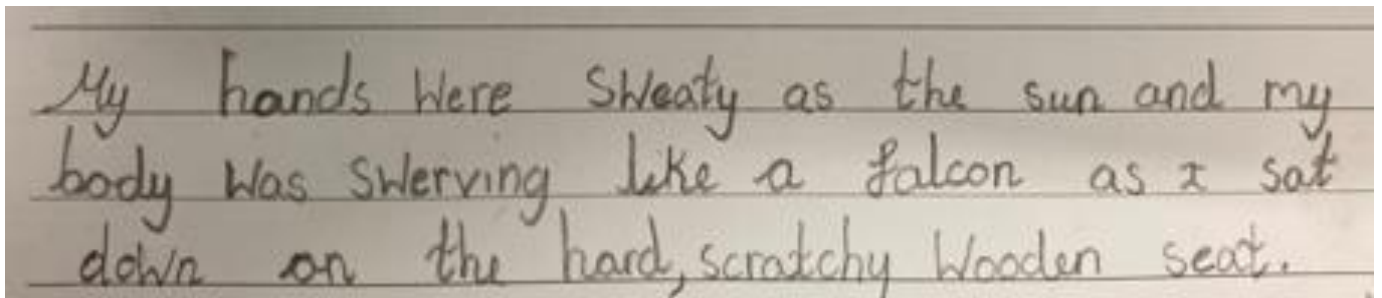 My hands Were SWeaty as the sun and my
body Was SWerving like a falcon as I sat
down on the hard, scratchy Wooden seat.